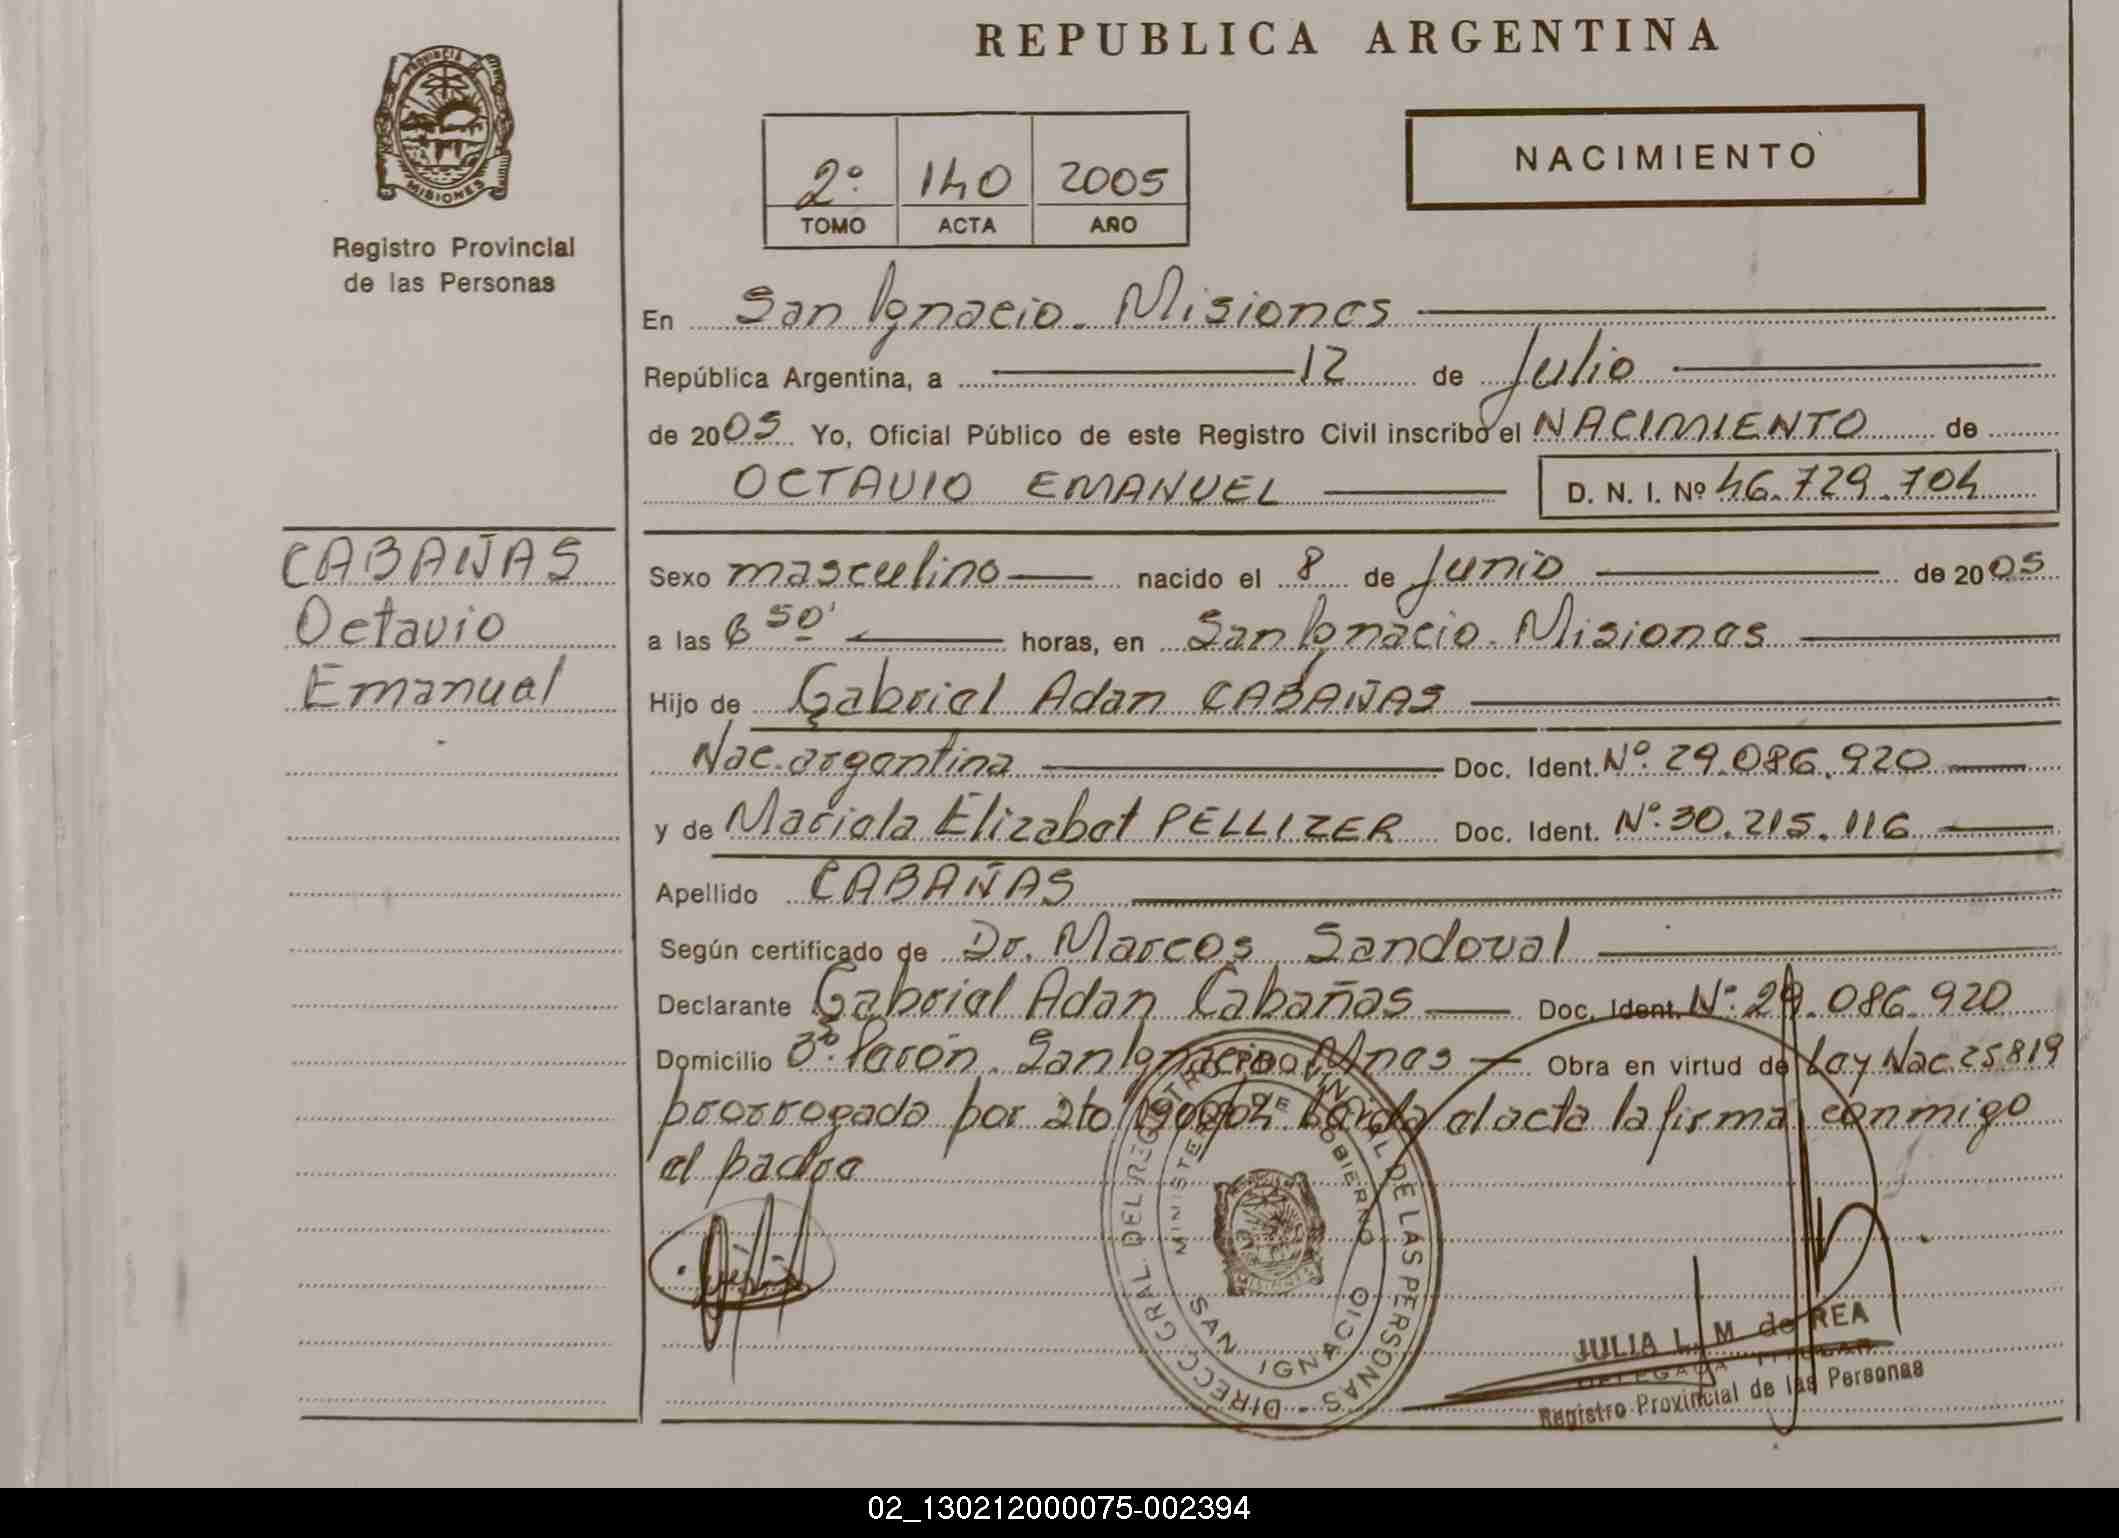 REPUBLICA ARGENTINA
PROVINCIA DE MISIONES
Registro Provincial
de las Personas
2º 140 2005
TOMO ACTA AÑO
NACIMIENTO
En San Ignacio. Misiones
República Argentina, a 12 de Julio
de 2005 Yo, Oficial Público de este Registro Civil inscribo el NACIMIENTO de
OCTAVIO EMANUEL D. N. I. Nº 46.729.704
CABAÑAS
Octavio
Emanuel
Sexo masculino nacido el 8 de Junio de 2005
a las 6 50' horas, en San Ignacio. Misiones
Hijo de Gabriel Adan CABAÑAS
Nac. argentina Doc. Ident. Nº. 29.086.920
y de Mariela Elizabet PELLIZER Doc. Ident. Nº. 30.215.116
Apellido CABAÑAS
Según certificado de Dr. Marcos Sandoval
Declarante Gabriel Adan Cabañas Doc. Ident. Nº. 29.086.920
Domicilio San Ignacio Mnes Obra en virtud de Ley Nac. 25819
prorrogada por dto el acta la firma conmigo
el padre
DIRECC. GRAL. DEL REGISTRO PROVINCIAL DE LAS PERSONAS -
MINISTERIO DE GOBIERNO
SAN IGNACIO
JULIA L. M. de REA
DELEGADA TITULAR
Registro Provincial de las Personas
02_130212000075-002394